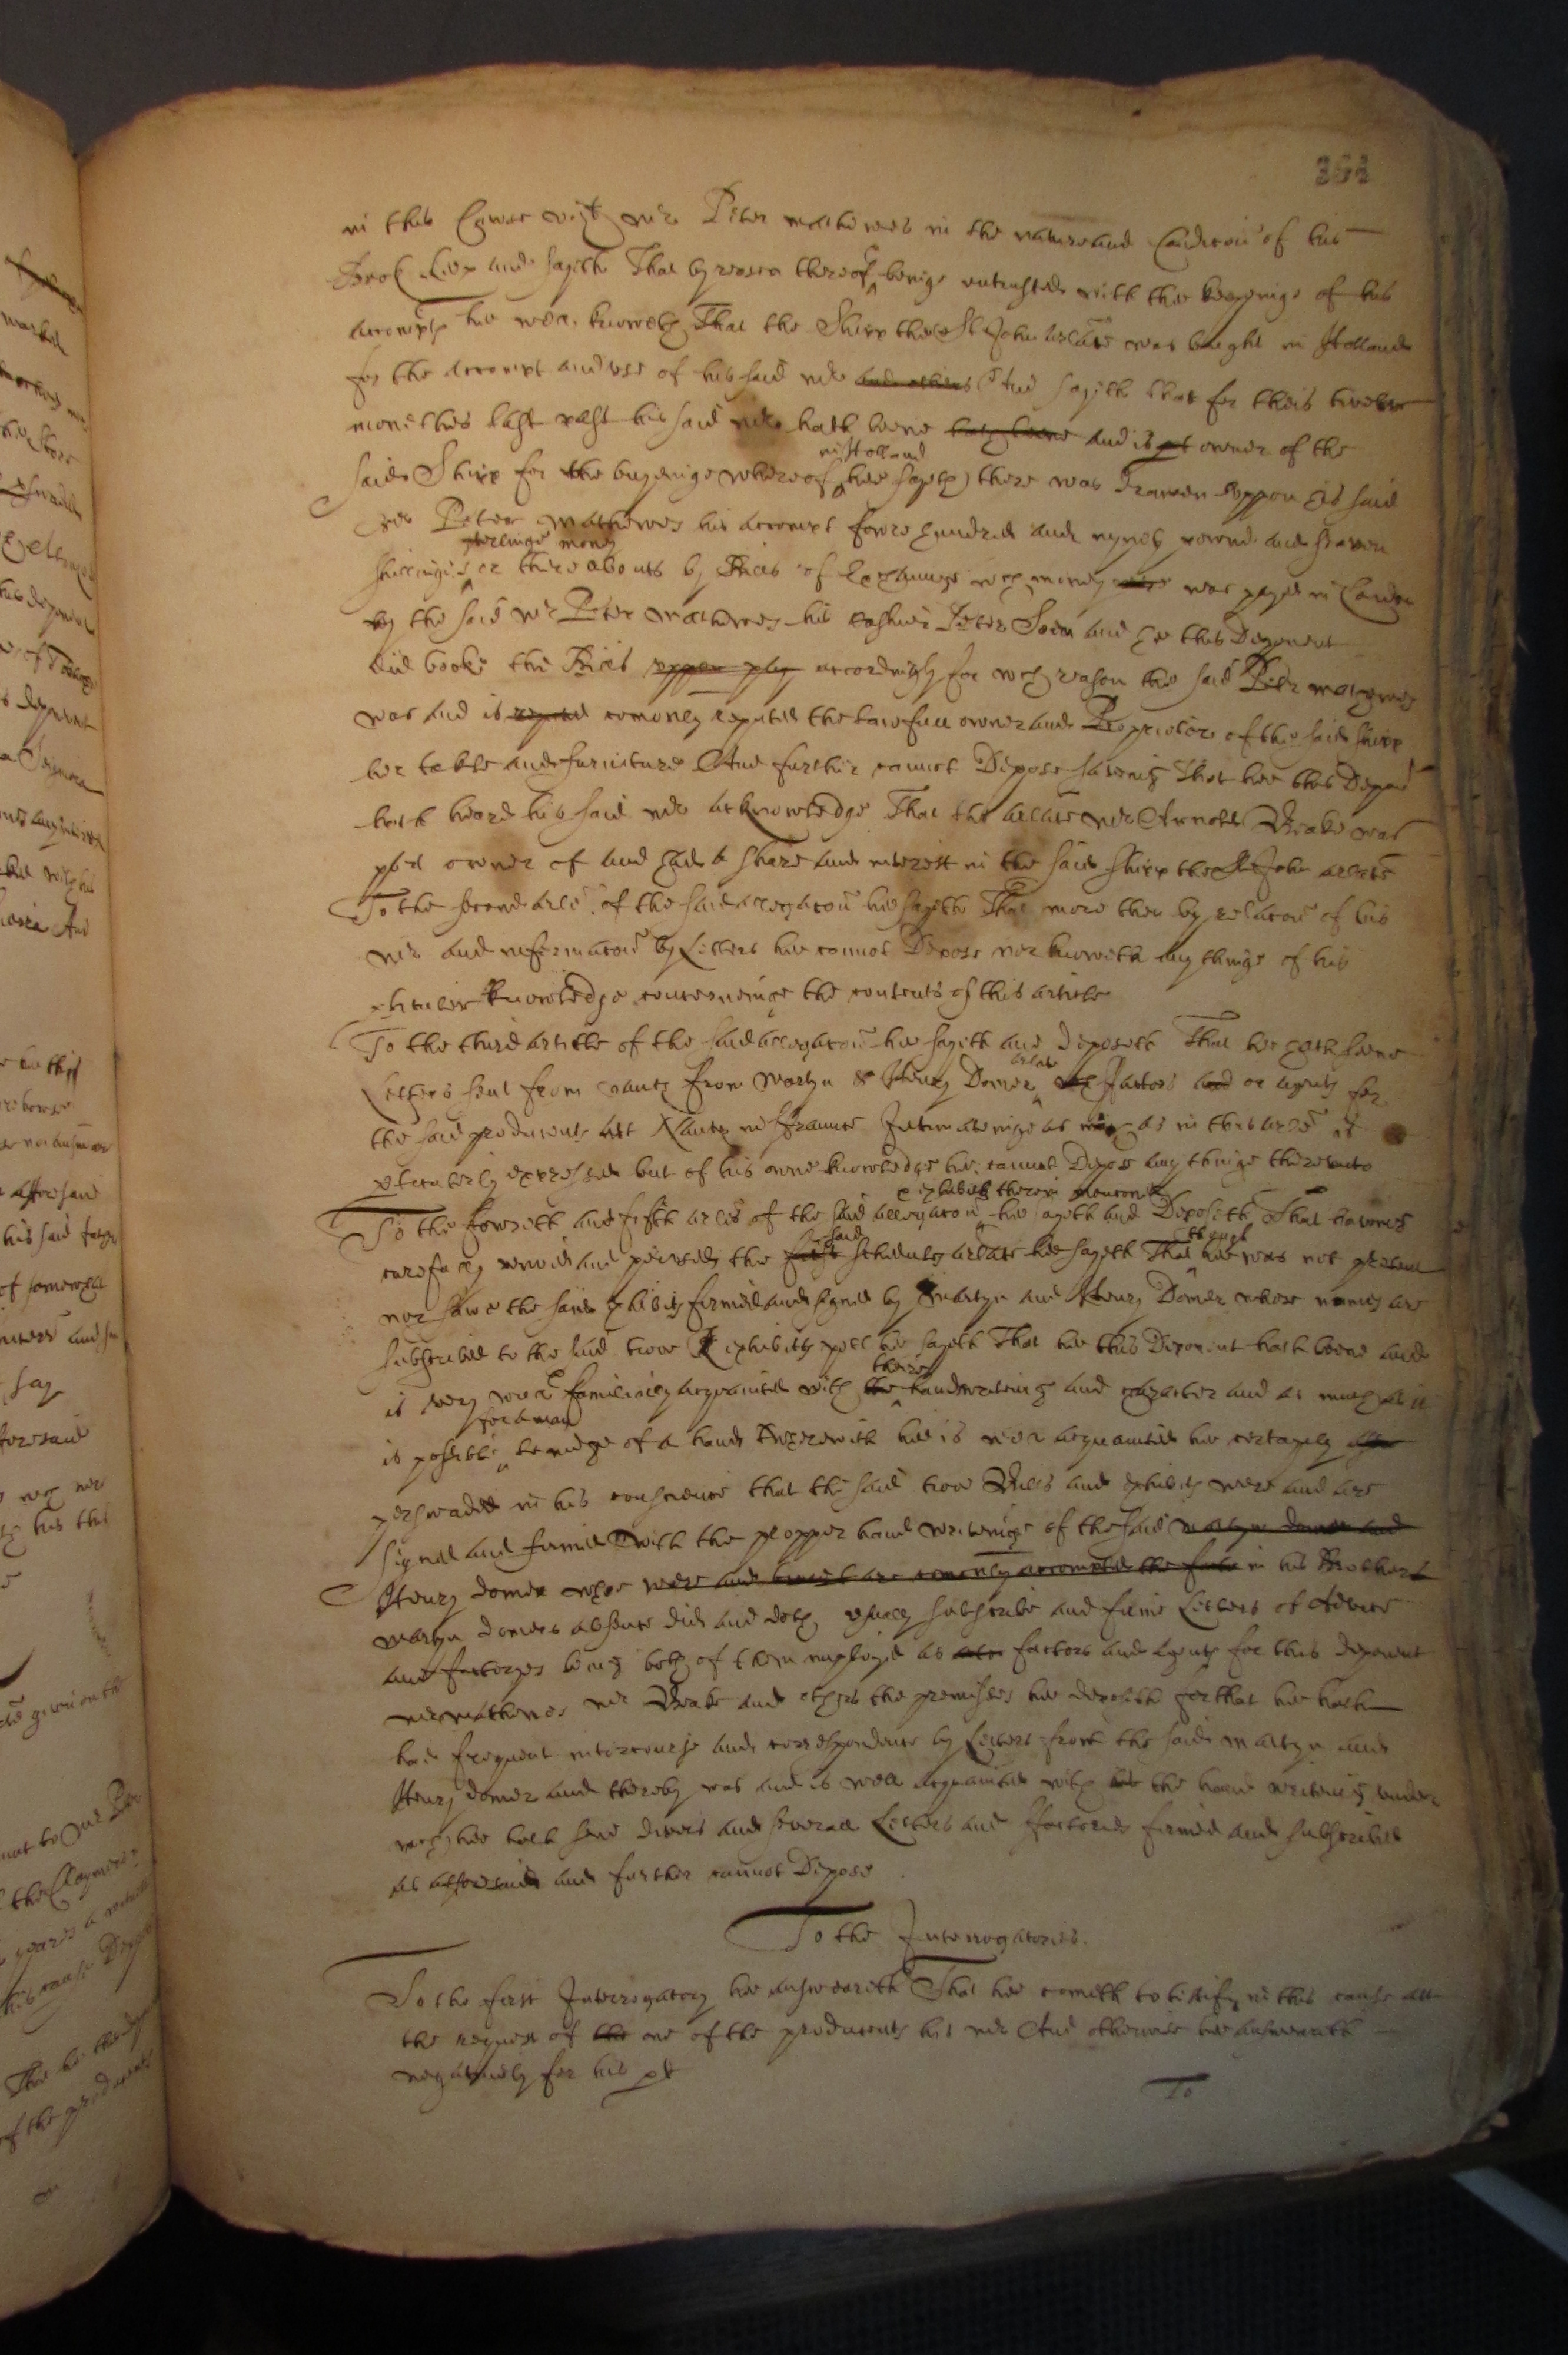 262
in this Cause vizt mr Peter Mathewes in the nature and Condicon of his
Book keep and sayeth That by reason thereof being entrusted with the keepinge of his
accompts he well knoweth That the Shipp the St John arlate was bought in Holland
for the accompt and use of his said mr and others And sayeth that for theis twelve
monethes last past his said mr hath beene hath beene and is pt owner of the
said Shipp for the buyeinge whereof in Holland (hee sayeth) there was drawen uppon his said
mr Peter Mathewes his accompt fowre hundred and nynety pownd and seaven
shillings sterlinge money or thereabouts by Bills of Exchange wch money was payd in London
by the said mr Peter Mathewes his cashier Peter and hee this Deponent
did booke the Bills uppon accordingly for wch reason the said Peter Mathewes
was and is reputed comonly reputed the lawfull owner and Proprietor of the said shipp
her takle and furniture And further cannot Depose saveing That hee this Depont
hath heard his said mr acknowledge That the arlate mr Arnold Beake was
pt owner of and had a share and interest in the said shipp the St John arlate
To the second arle of the said allegacon hee sayeth That more then by relacon of his
mr and informacon by Letters hee cannot Depose nor knoweth any thinge of his
pticuler knowledge concerneinge the contents of this article
To the third article of the said allegacon hee sayeth and deposeth That hee hath seene
Letters sent from Nantz from Martyn & Henry Domer arlate Factors and or agents for
the said producents att Nantz in ffraunce Intimateinge as much as in this arle is
pticulerly expressed but of his owne knowledge hee cannot Depose any thinge thereunto
To the fowerth and fifth arles of the said allegacon & exhibits therein mencioned hee sayeth and Deposeth That haveing
carefully viewed and perused the said schedules arlate hee sayeth That though hee was not present
nor sawe the said exhibits firmed and signed by Martyn and Henry Domer whose names are
subscribed to the said twoe exhibits yett hee sayeth That hee this Deponent hath beene and
is very well familiarly acquainted with the theire handwriteing and character and as much as it
is possible for a man to judge of a hand wherewith hee is well acquainted hee certaynly
perswaded in his conscience that the said twoe Bills and exhibits were and are
signed and firmed with the propper hand writeinge of the said Martyn Domer and
Henry Domer whoe were and are comonly accompted the in his Brothers
Martyn Domers absence did and doth usually subscribe and firme Letters of Advice
and factoryes being both of them imployed as factors and agents for this deponents
mr Mathewes mr Beake and others the premisses hee deposeth for that hee hath
had frequent intercourse and correspondence by Letters from the said Martyn and
Henry Domer and thereby was and is well acquainted with the hand writeing under
wch hee hath seene divers and severall Letters and Factories firmed and subscribed
as aforesaid and further cannot Depose.
To the Interrogatories.
To the first Interrogatory hee answeareth That hee cometh to testify in this cause att
the request of the one of the producents his mr And otherwise hee answereth
negatively for his pt
To